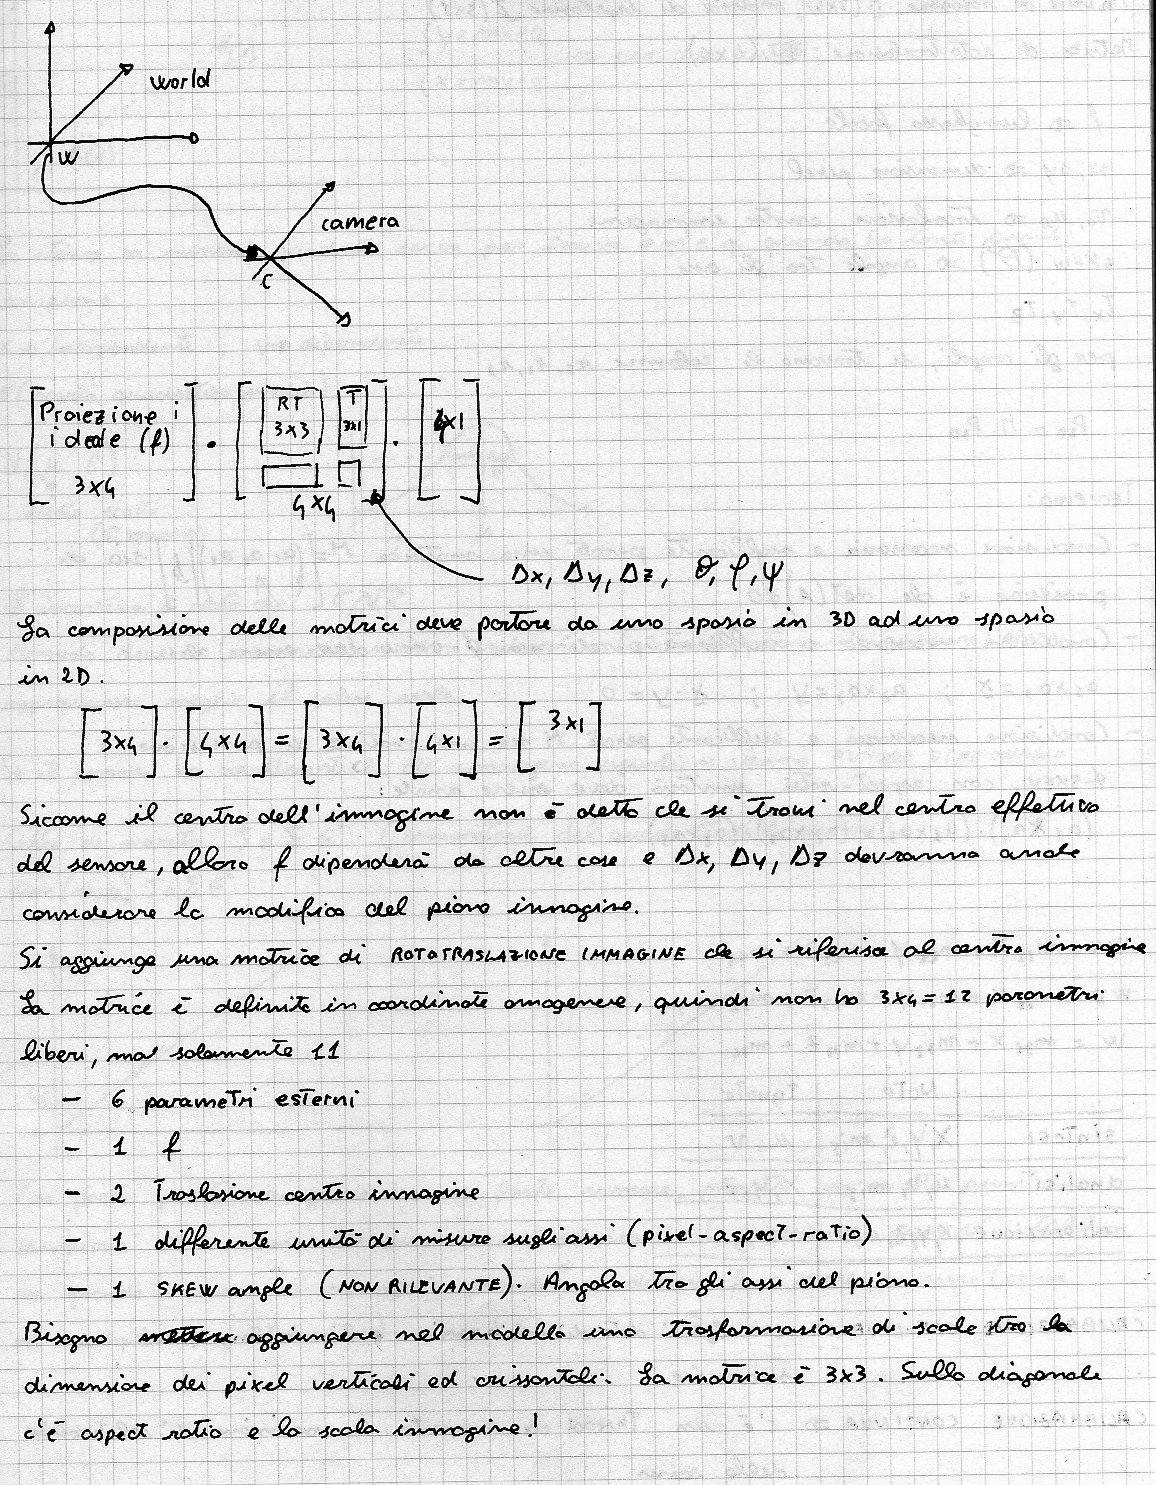 world
W
camera
C
Proiezione i
ideale (f)
3x4
RT
3x3
T
3x1
4x4
4x1
Δx, Δy, Δz, θ, φ, ψ
La composizione delle matrici deve portare da uno spazio in 3D ad uno spazio
in 2D.
[3x4] · [4x4] = [3x4] · [4x1] = [3x1]
Siccome il centro dell'immagine non è detto che si trovi nel centro effettivo
del sensore, allora f dipenderà da altre cose e Δx, Δy, Δz dovranno anche
considerare la modifica del piano immagine.
Si aggiunge una matrice di ROTOTRASLAZIONE IMMAGINE che si riferisce al centro immagine
La matrice è definita in coordinate omogenee, quindi non ho 3x4=12 parametri
liberi, ma solamente 11
- 6 parametri esterni
- 1 f
- 2 Traslazione centro immagine
- 1 differente unità di misura sugli assi (pixel-aspect-ratio)
- 1 SKEW angle (NON RILEVANTE). Angolo tra gli assi del piano.
Bisogna aggiungere nel modello una trasformazione di scala tra la
dimensione dei pixel verticali ed orizzontali. La matrice è 3x3. Sulla diagonale
c'è aspect ratio e la scala immagine!